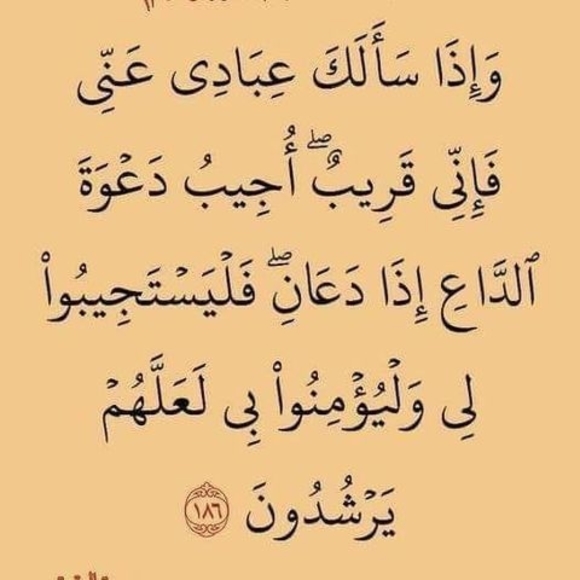 وَإِذَا سَأَلَكَ عِبَادِى عَنِّى
فَإِنِّى قَرِيبٌۖ أُجِيبُ دَعْوَةَ
ٱلدَّاعِ إِذَا دَعَانِۖ فَلْيَسْتَجِيبُوا۟
لِى وَلْيُؤْمِنُوا۟ بِى لَعَلَّهُمْ
يَرْشُدُونَ ١٨٦